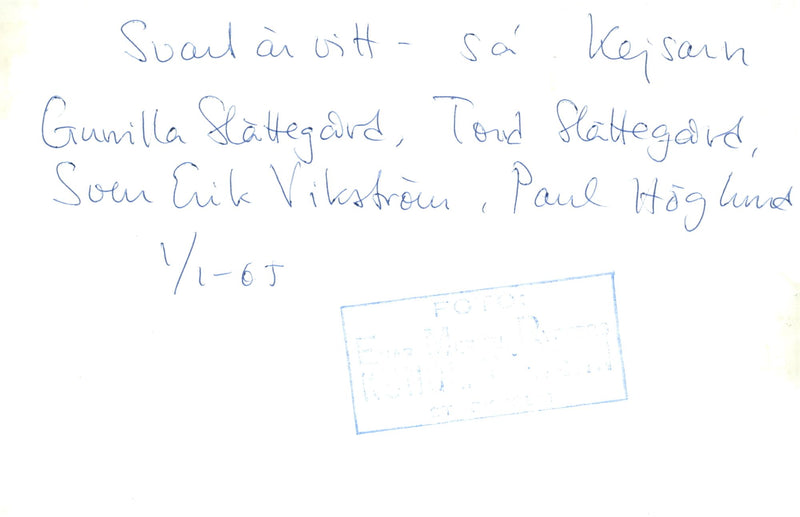 Svart är vitt - sá Kejsarn
Gunilla Slättegård, Tord Slättegård,
Sven Erik Vikström, Paul Höglund
1/1-65
FOTO: